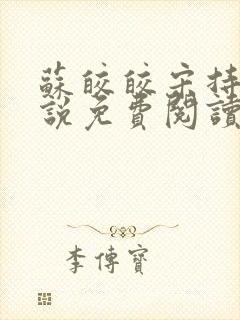 蘇皎皎宋持
說免費閱讀
李傳寶